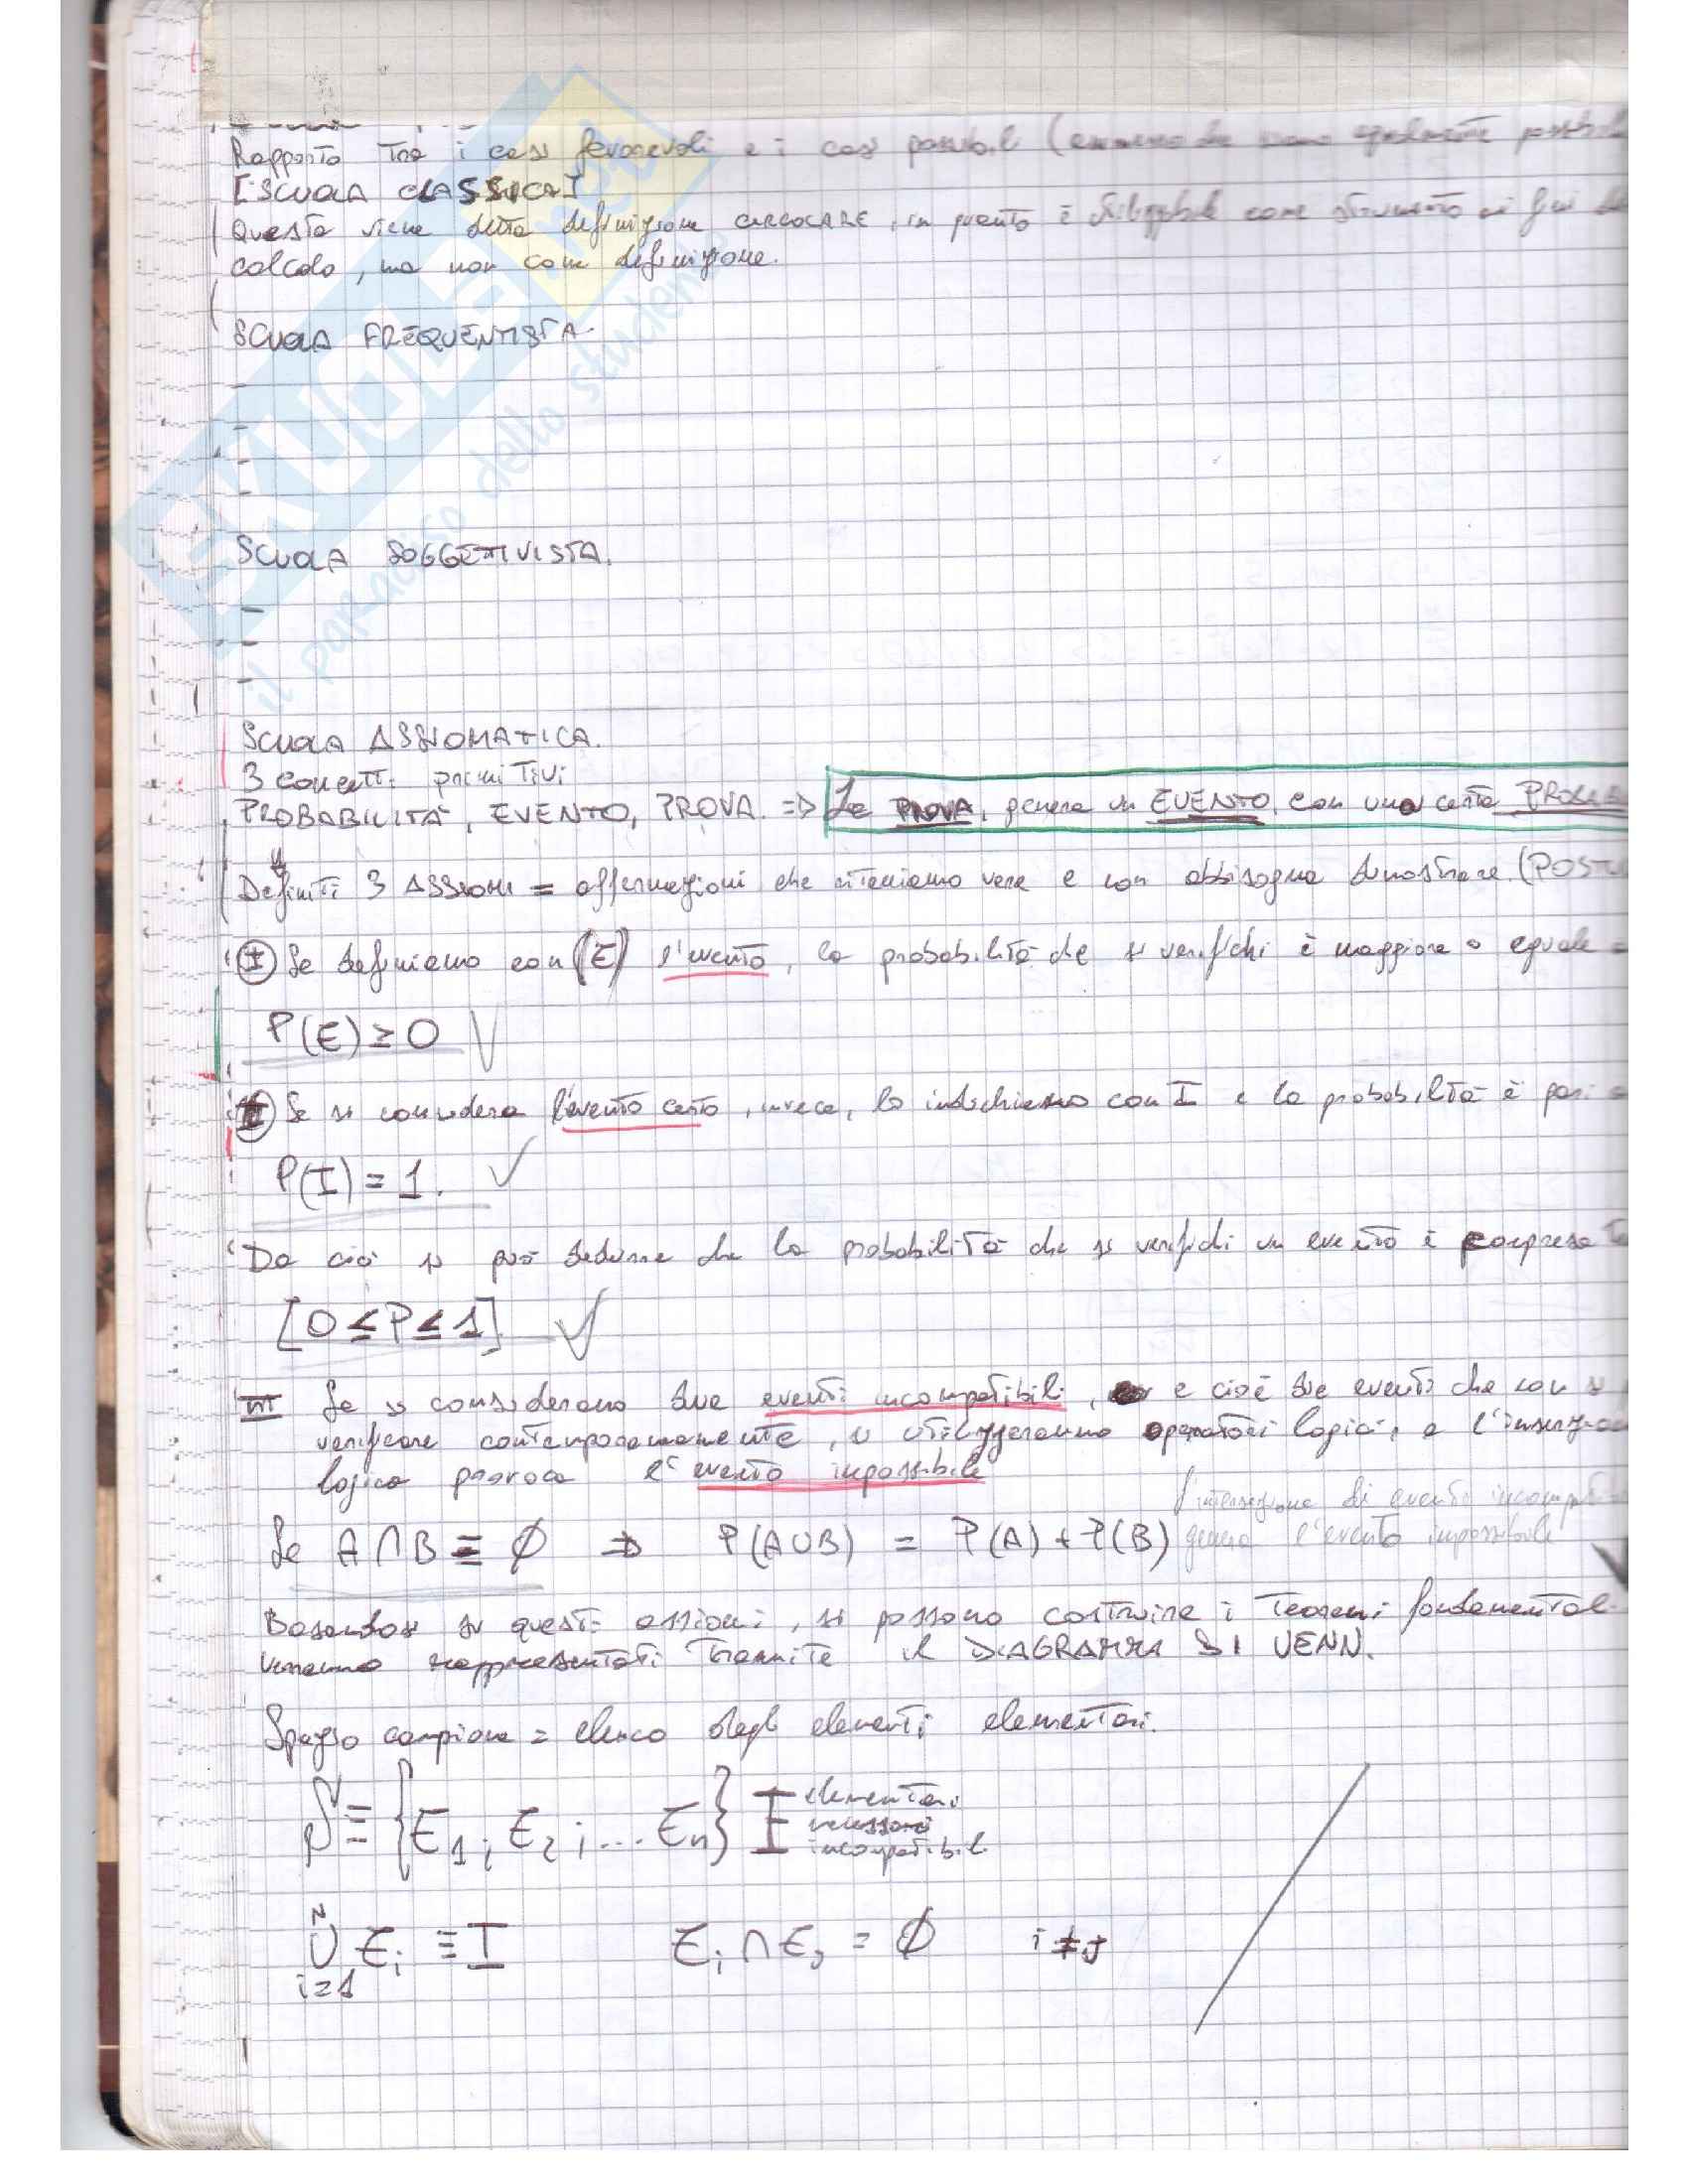 Rapporto tra i casi favorevoli e i casi possibili (ammesso che siano egualmente possibili
[SCUOLA CLASSICA]
Questa viene detta definizione CIRCOLARE, in quanto è utilizzabile come strumento ai fini del
calcolo, ma non come definizione.
SCUOLA FREQUENTISTA.
-
-
-
-
SCUOLA SOGGETTIVISTA.
-
-
-
SCUOLA ASSIOMATICA.
3 concetti primitivi
PROBABILITÀ, EVENTO, PROVA. => La PROVA, genera un EVENTO, con una certa PROBA
Definiti 3 ASSIOMI = affermazioni che riteniamo vere e non abbisogna dimostrare. (POSTU
I Se definiamo con (E) l'evento, la probabilità che si verifichi è maggiore o eguale a
P(E) ≥ 0 √
II Se si considera l'evento certo, invece, lo indichiamo con I e la probabilità è pari a
P(I) = 1. √
Da ciò si può dedurre che la probabilità che si verifichi un evento è compresa
[0 ≤ P ≤ 1] √
III Se si considerano due eventi incompatibili, e cioè due eventi che non si
verificare contemporaneamente, si utilizzeranno operatori logici, e l'
logica provoca l'evento impossibile
l'intersezione di eventi incompati
Se A∩B ≡ ∅ => P(A∪B) = P(A) + P(B) genera l'evento impossibile
Basandosi su questi assiomi, si possono costruire i Teoremi fondamentali
verranno rappresentati tramite il DIAGRAMMA DI VENN.
Spazio campione = elenco degli elementi elementari.
S ≡ {E1; E2; ... En} I elementari
necessari
incompatibili
N
∪ Ei ≡ I Ei ∩ Ej = ∅ i ≠ j
i=1
il paradiso dello studente